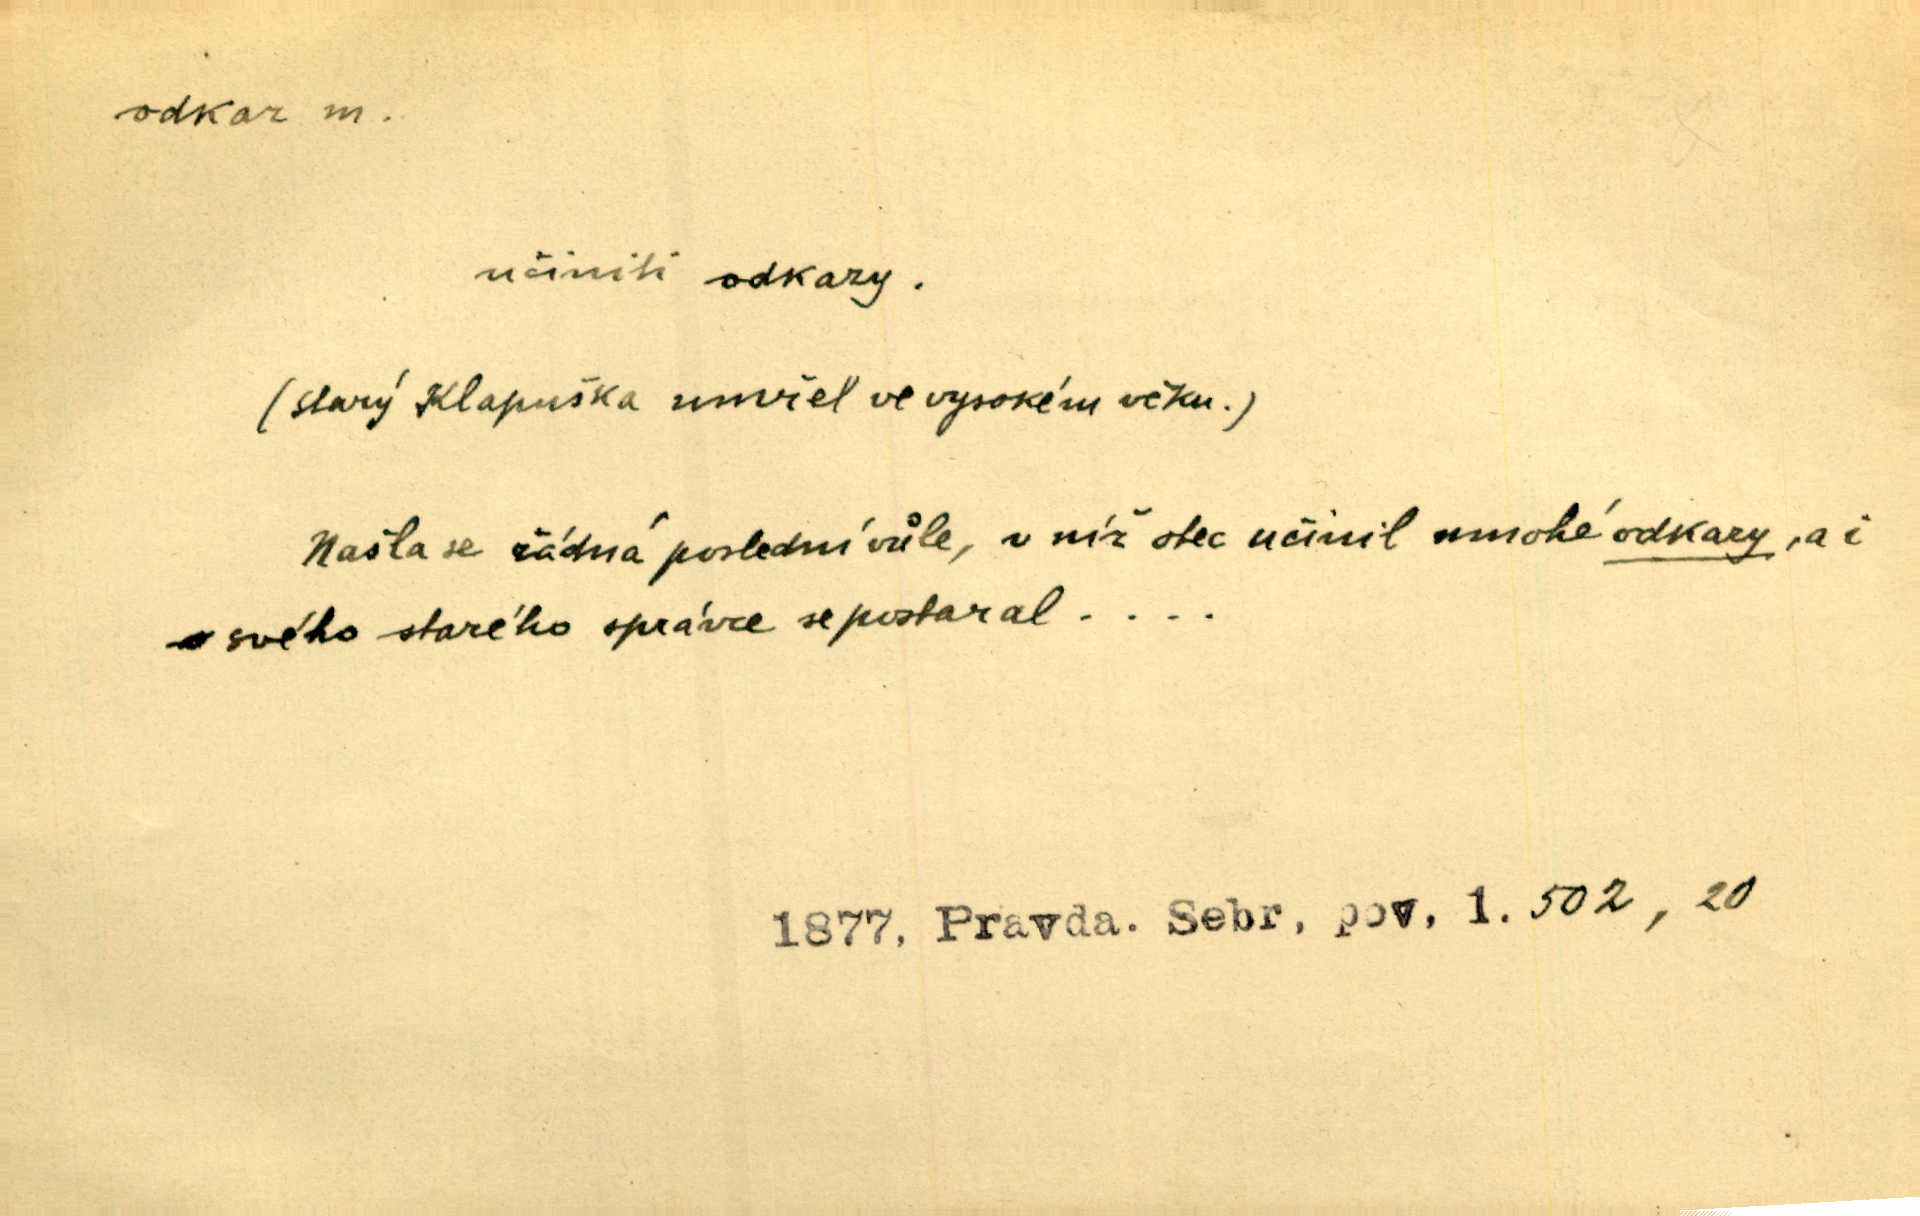 odkaz m.
učiniti odkazy.
(Starý Klapuška umřel ve vysokém věku.)
Našla se řádná poslední vůle, v níž otec učinil mnohé odkazy, a i
svého starého správce se postaral . . . .
1877, Pravda. Sebr, pov, 1. 502, 20